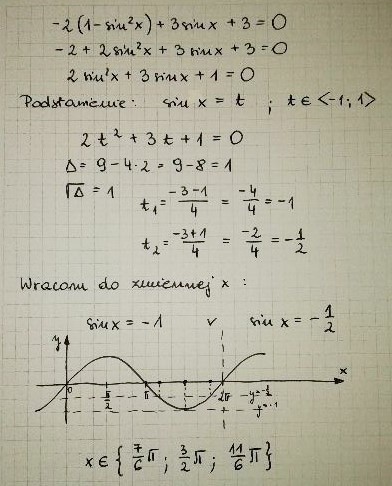 -2(1-sin²x) + 3sinx + 3 = 0
-2 + 2sin²x + 3sinx + 3 = 0
2sin²x + 3sinx + 1 = 0
Podstawienie: sin x = t ; t ∈ <-1; 1>
2t² + 3t + 1 = 0
Δ = 9 - 4·2 = 9 - 8 = 1
√Δ = 1
t₁ = (-3-1)/4 = -4/4 = -1
t₂ = (-3+1)/4 = -2/4 = -1/2
Wracam do zmiennej x :
sinx = -1 v sin x = -1/2
y x
0 π/2 π 2π -y=-1/2
y=-1
x ∈ { 7/6 π ; 3/2 π ; 11/6 π }